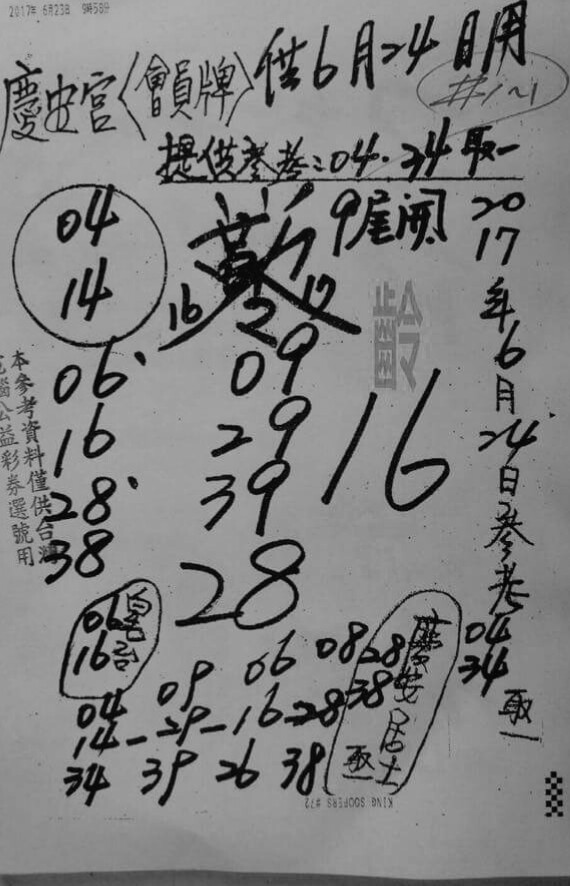 2017年 6月23日 9時58分
慶安宮〈會員牌〉供6月24日用
#1~1
提供參考:04.34取一
04
14
9尾開
16 2 17
06 09
16 29 16
28 39
38
28
2017年6月24日參考
04
34
取一
本參考資料僅供台灣
電腦公益彩券選號用
鈴
06
16
慶安居士
取一
04 09 06 08 28
14-29-16-28 38
34 39 26 38
KING SOOPERS #72